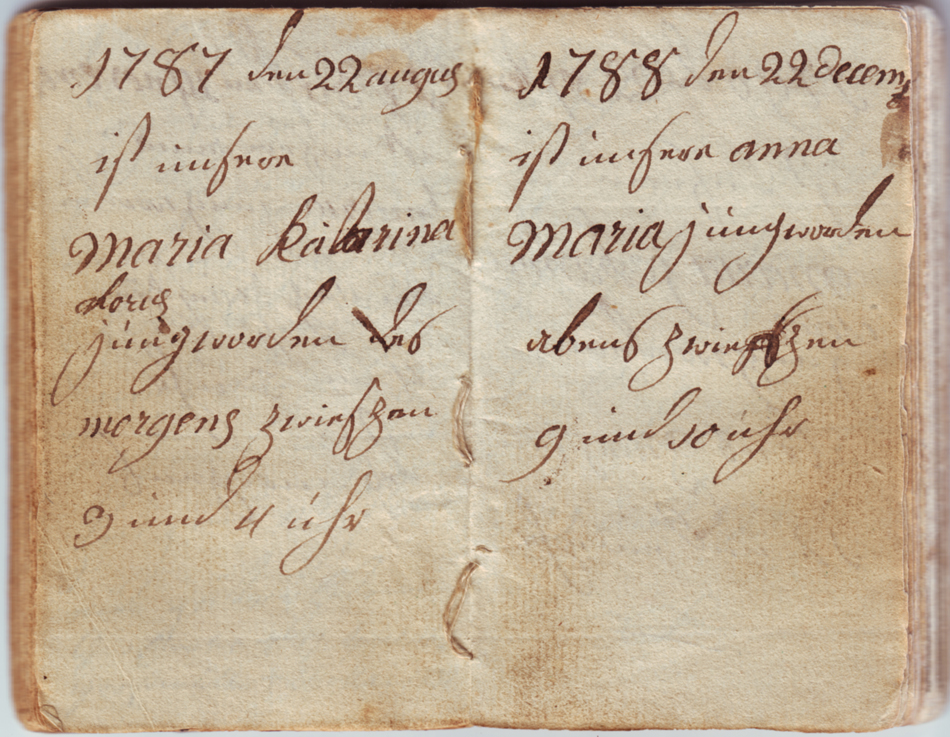 1787 den 22 augus
ist unsere
Maria Katarina
jungworden des
morgens zwieschen
3 und 4 uhr
1788 den 22 decem
ist unsere anna
Maria jungworden
abens zwieschen
9 und 10 uhr